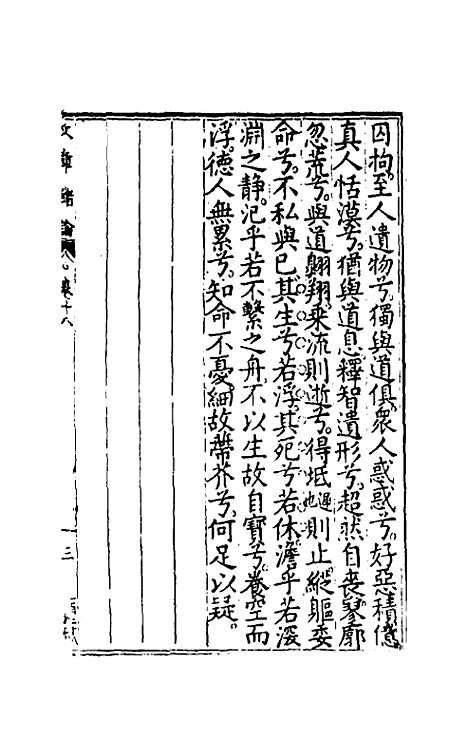 囚拘。至人遺物兮。獨與道俱。衆人惑惑兮。好惡積億
真人恬漠兮。獨與道息。釋智遺形兮。超然自喪。寥廓
忽荒兮。與道翺翔。乘流則逝兮。得坻遅也則止。縱軀委
命兮。不私與已。其生兮若浮。其死兮若休。澹乎若深
淵之静。汜乎若不繫之舟。不以生故自寶兮。養空而
浮。德人無累兮。知命不憂。細故蔕芥兮。何足以疑。
文章緒論 卷十八
三